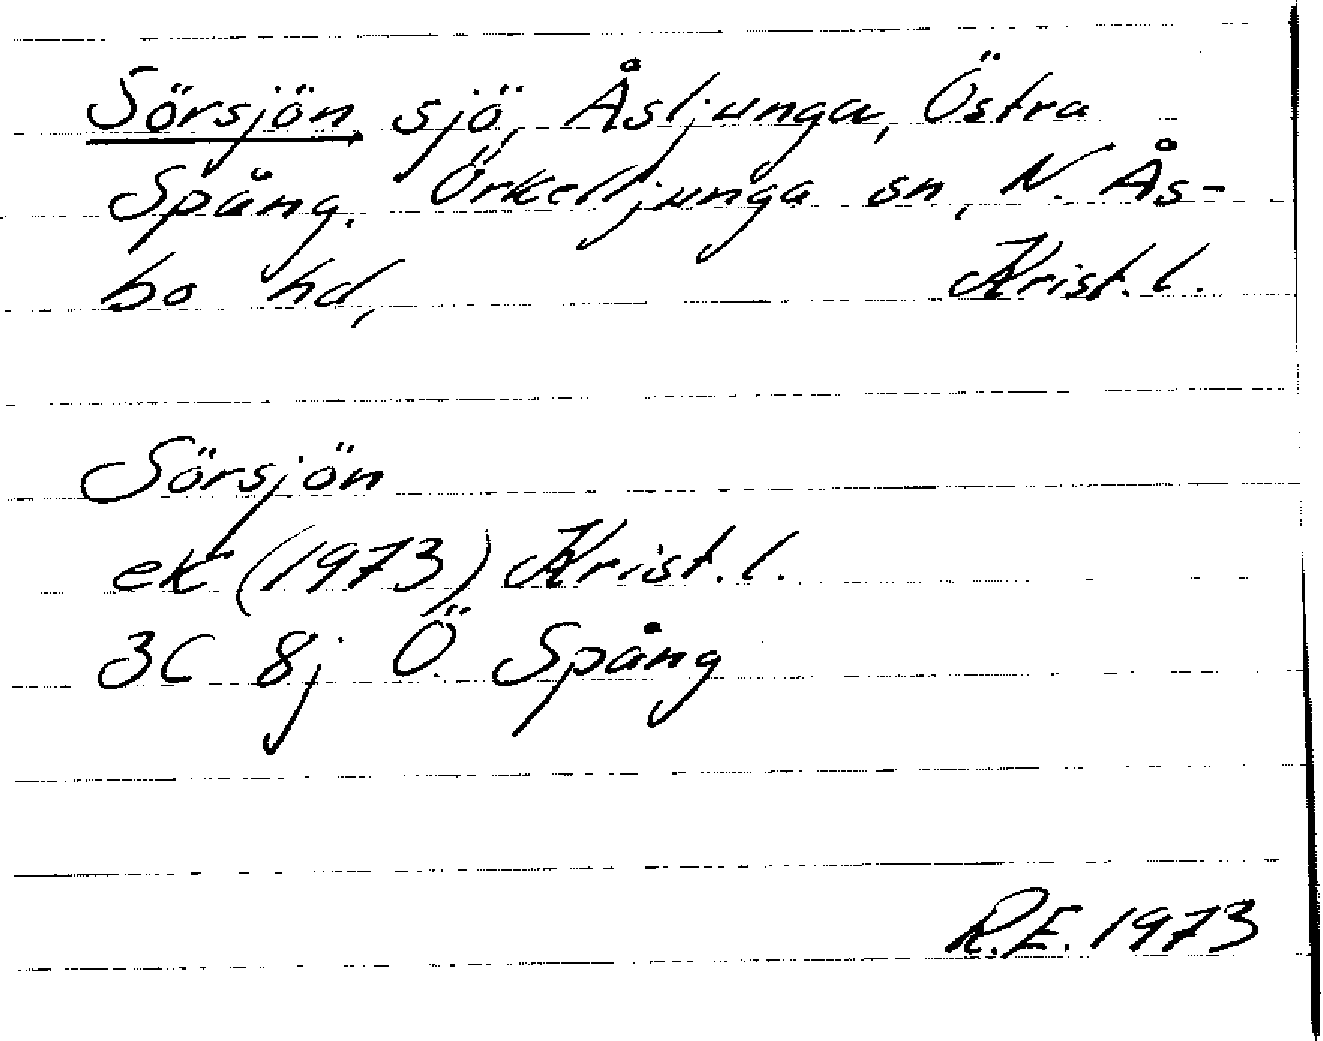 Sörsjön, sjö, Åsljunga, Östra
Spång. Örkelljunga sn, N. Ås-
bo hd, Krist. l.
Sörsjön
ek (1973) Krist. l.
3C 8j Ö. Spång
R.E. 1973